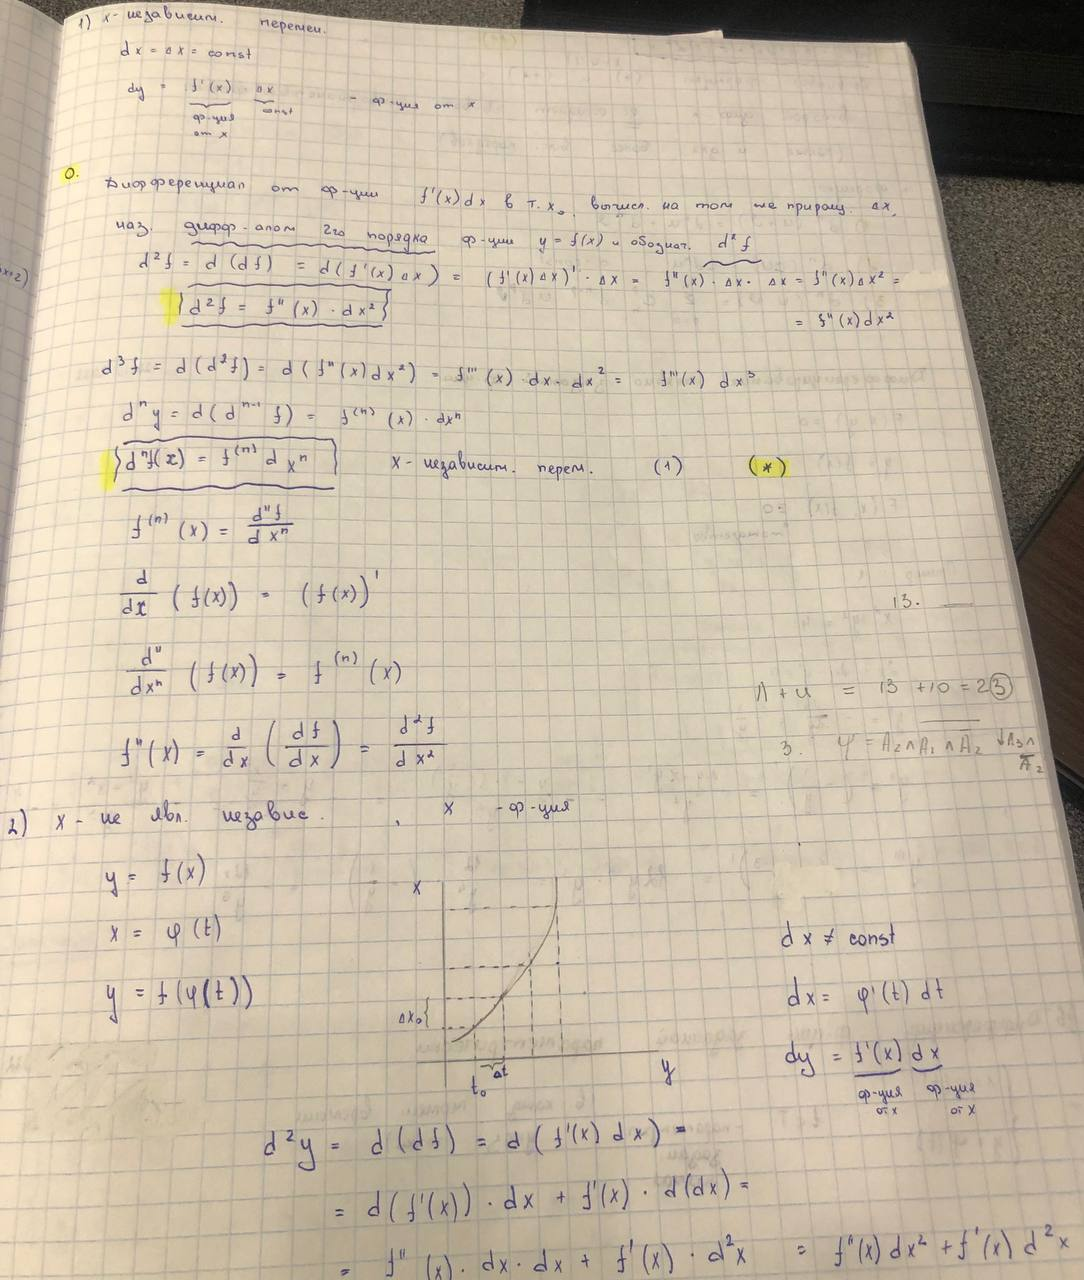 1) x - независим. перемен.
dx = Δx = const
dy = f'(x) Δx - ф-ция от x
ф-ция const
от x
О. Дифференциал от ф-ции f'(x)dx в т. x₀, вычисл. на том же приращ. Δx,
наз. дифф-алом 2го порядка ф-ции y = f(x) и обознат. d²f
d²f = d(df) = d(f'(x)Δx) = (f'(x)Δx)' · Δx = f''(x) · Δx · Δx = f''(x)Δx² =
= f''(x)dx²
d²f = f''(x) · dx²
d³f = d(d²f) = d(f''(x)dx²) = f'''(x) · dx · dx² = f'''(x) dx³
dⁿy = d(dⁿ⁻¹f) = f⁽ⁿ⁾(x) · dxⁿ
dⁿf(x) = f⁽ⁿ⁾ dxⁿ x - независим. перем. (1) (*)
f⁽ⁿ⁾(x) = dⁿf / dxⁿ
d/dx (f(x)) = (f(x))'
13.
dⁿ/dxⁿ (f(x)) = f⁽ⁿ⁾(x)
Л + И = 13 + 10 = 23
f''(x) = d/dx (df/dx) = d²f/dx²
3. φ = A₂ ∧ A₁ ∧ A₂ ∨ A₃ ∧
A₂
2) x - не явл. независ. , x - ф-ция
y = f(x)
x
x = φ(t)
dx ≠ const
y = f(φ(t))
dx = φ'(t) dt
Δx₀
dy = f'(x) dx
t₀ Δt y
ф-ция ф-ция
от x от x
d²y = d(df) = d(f'(x) dx) =
= d(f'(x)) · dx + f'(x) · d(dx) =
= f''(x) · dx · dx + f'(x) · d²x = f''(x) dx² + f'(x) d²x